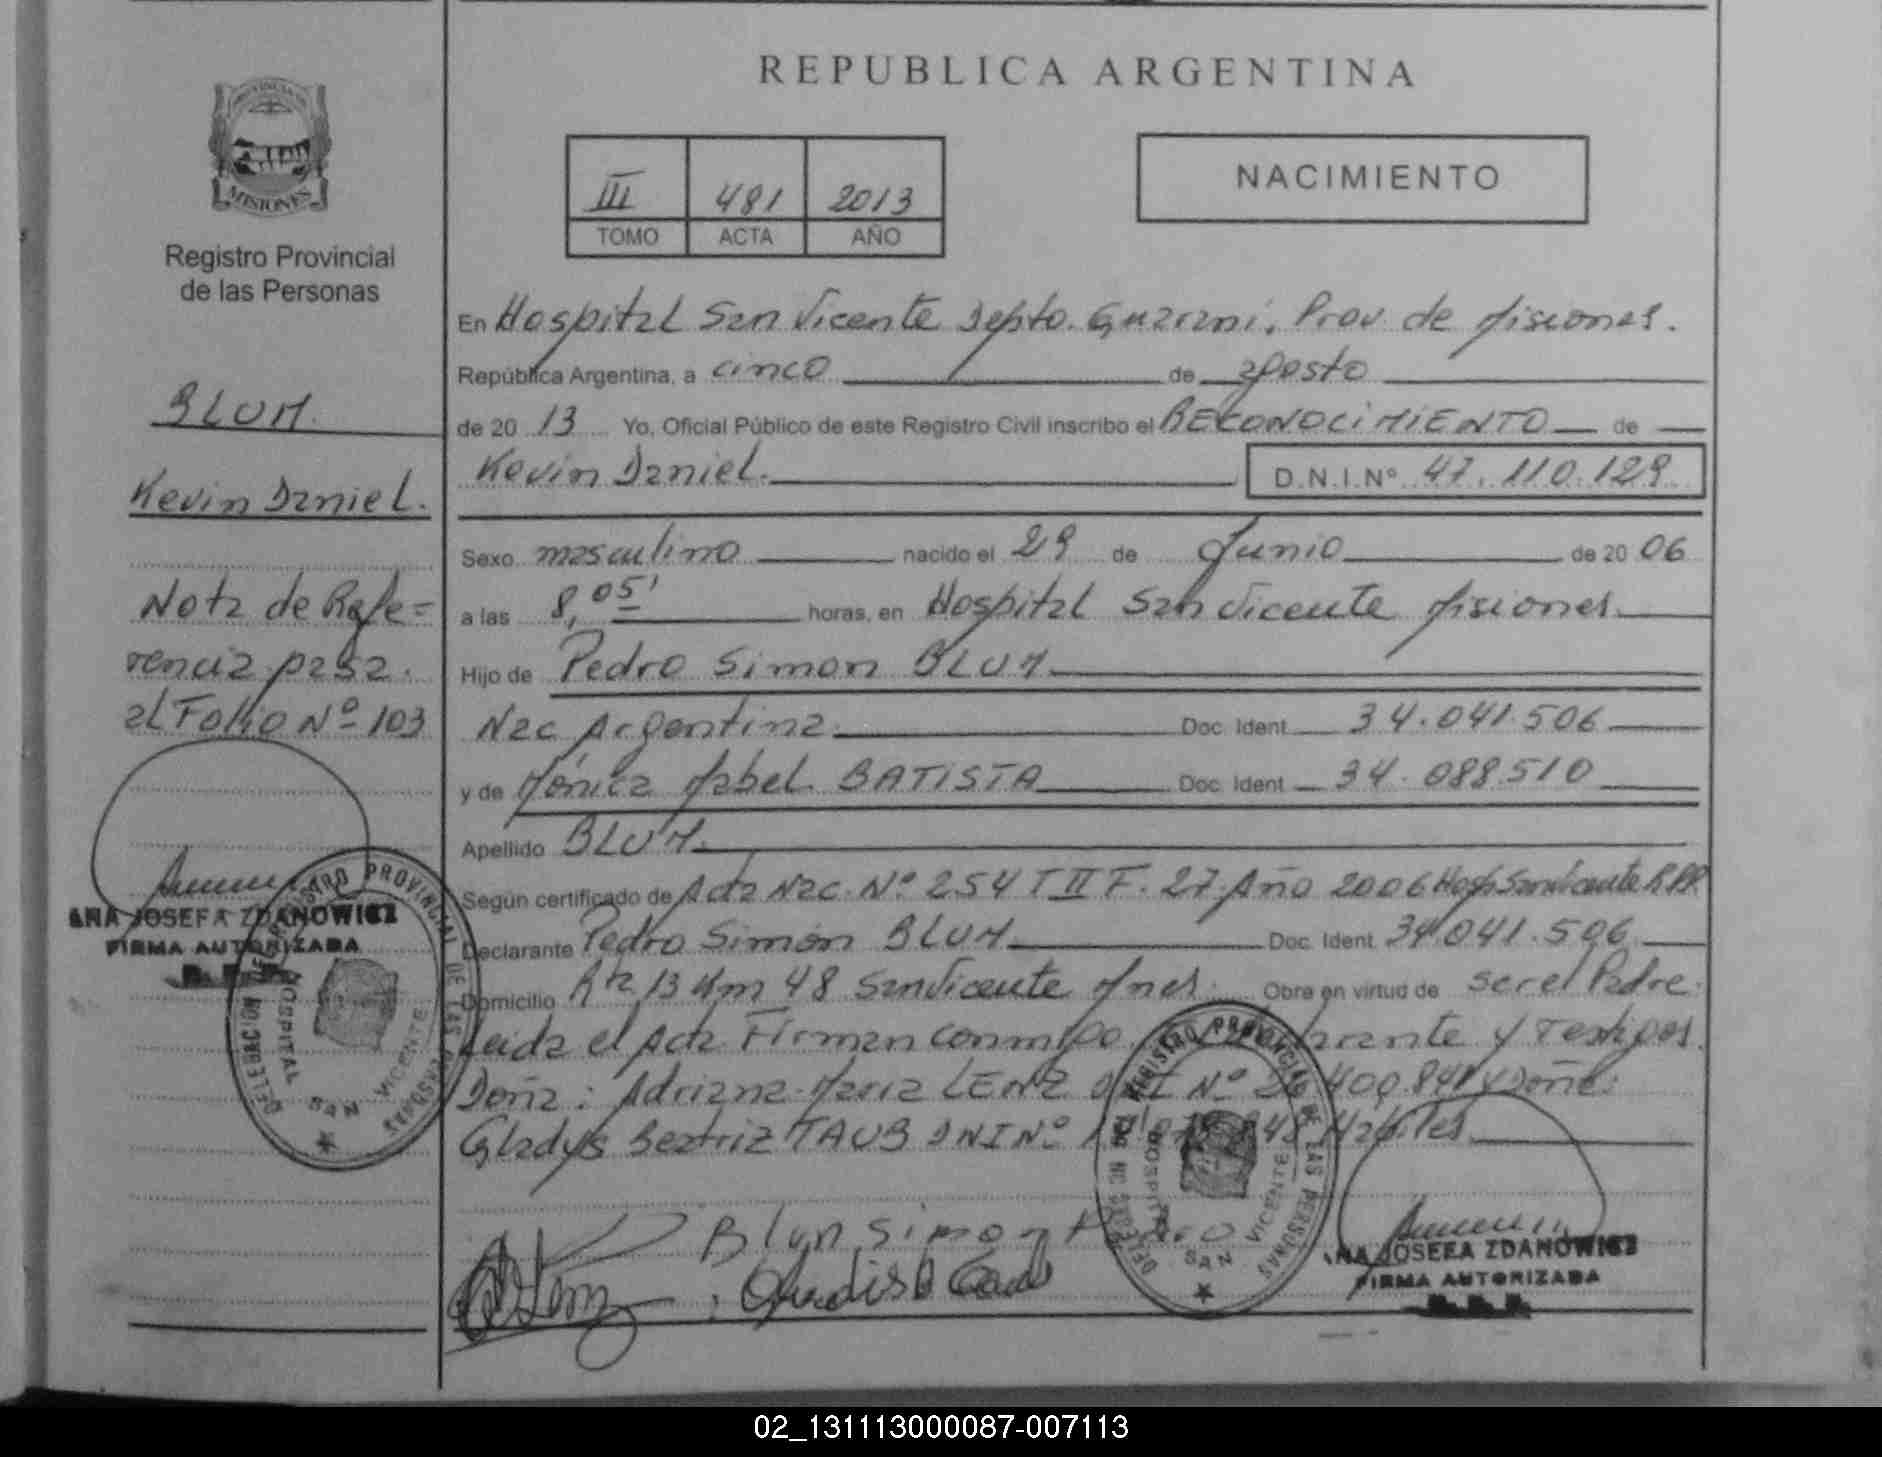 REPUBLICA ARGENTINA
PROVINCIA DE
MISIONES
Registro Provincial
de las Personas
III 481 2013
TOMO ACTA AÑO
NACIMIENTO
BLUM.
Kevin Daniel.
Nota de Refe=
rencia pasa
al Folio Nº 103
ANA JOSEFA ZDANOWICZ
FIRMA AUTORIZADA
DELEGACION DEL REGISTRO PROVINCIAL DE LAS PERSONAS
HOSPITAL SAN VICENTE
En Hospital San Vicente Depto. Guarani, Prov. de Misiones.
República Argentina, a cinco de agosto
de 20 13 Yo, Oficial Público de este Registro Civil inscribo el RECONOCIMIENTO de
Kevin Daniel. D.N.I.Nº 47.110.129
Sexo masculino nacido el 29 de Junio de 20 06
a las 8,05' horas, en Hospital San Vicente Misiones
Hijo de Pedro Simon BLUM
Nac Argentina. Doc. Ident. 34.041.506
y de Mónica Mabel BATISTA Doc. Ident. 34.088.510
Apellido BLUM.
Según certificado de Acta Nac. Nº 254 T II F. 27. Año 2006 Hosp San Vicente R.P.P.
Declarante Pedro Simón BLUM Doc. Ident. 34.041.506
Domicilio Rta 13 Km 48 San Vicente Mnes. Obra en virtud de ser el Padre.
Leida el Acta Firman conmigo Declarante y Testigos.
Doña: Adriana Maria LENZ DNI Nº 26.400.841 y Doña:
Gladys Beatriz TAUB DNI Nº Habiles
Blun Simon Pedro
DELEGACION DEL REGISTRO PROVINCIAL DE LAS PERSONAS
HOSPITAL SAN VICENTE
ANA JOSEFA ZDANOWICZ
FIRMA AUTORIZADA
02_131113000087-007113